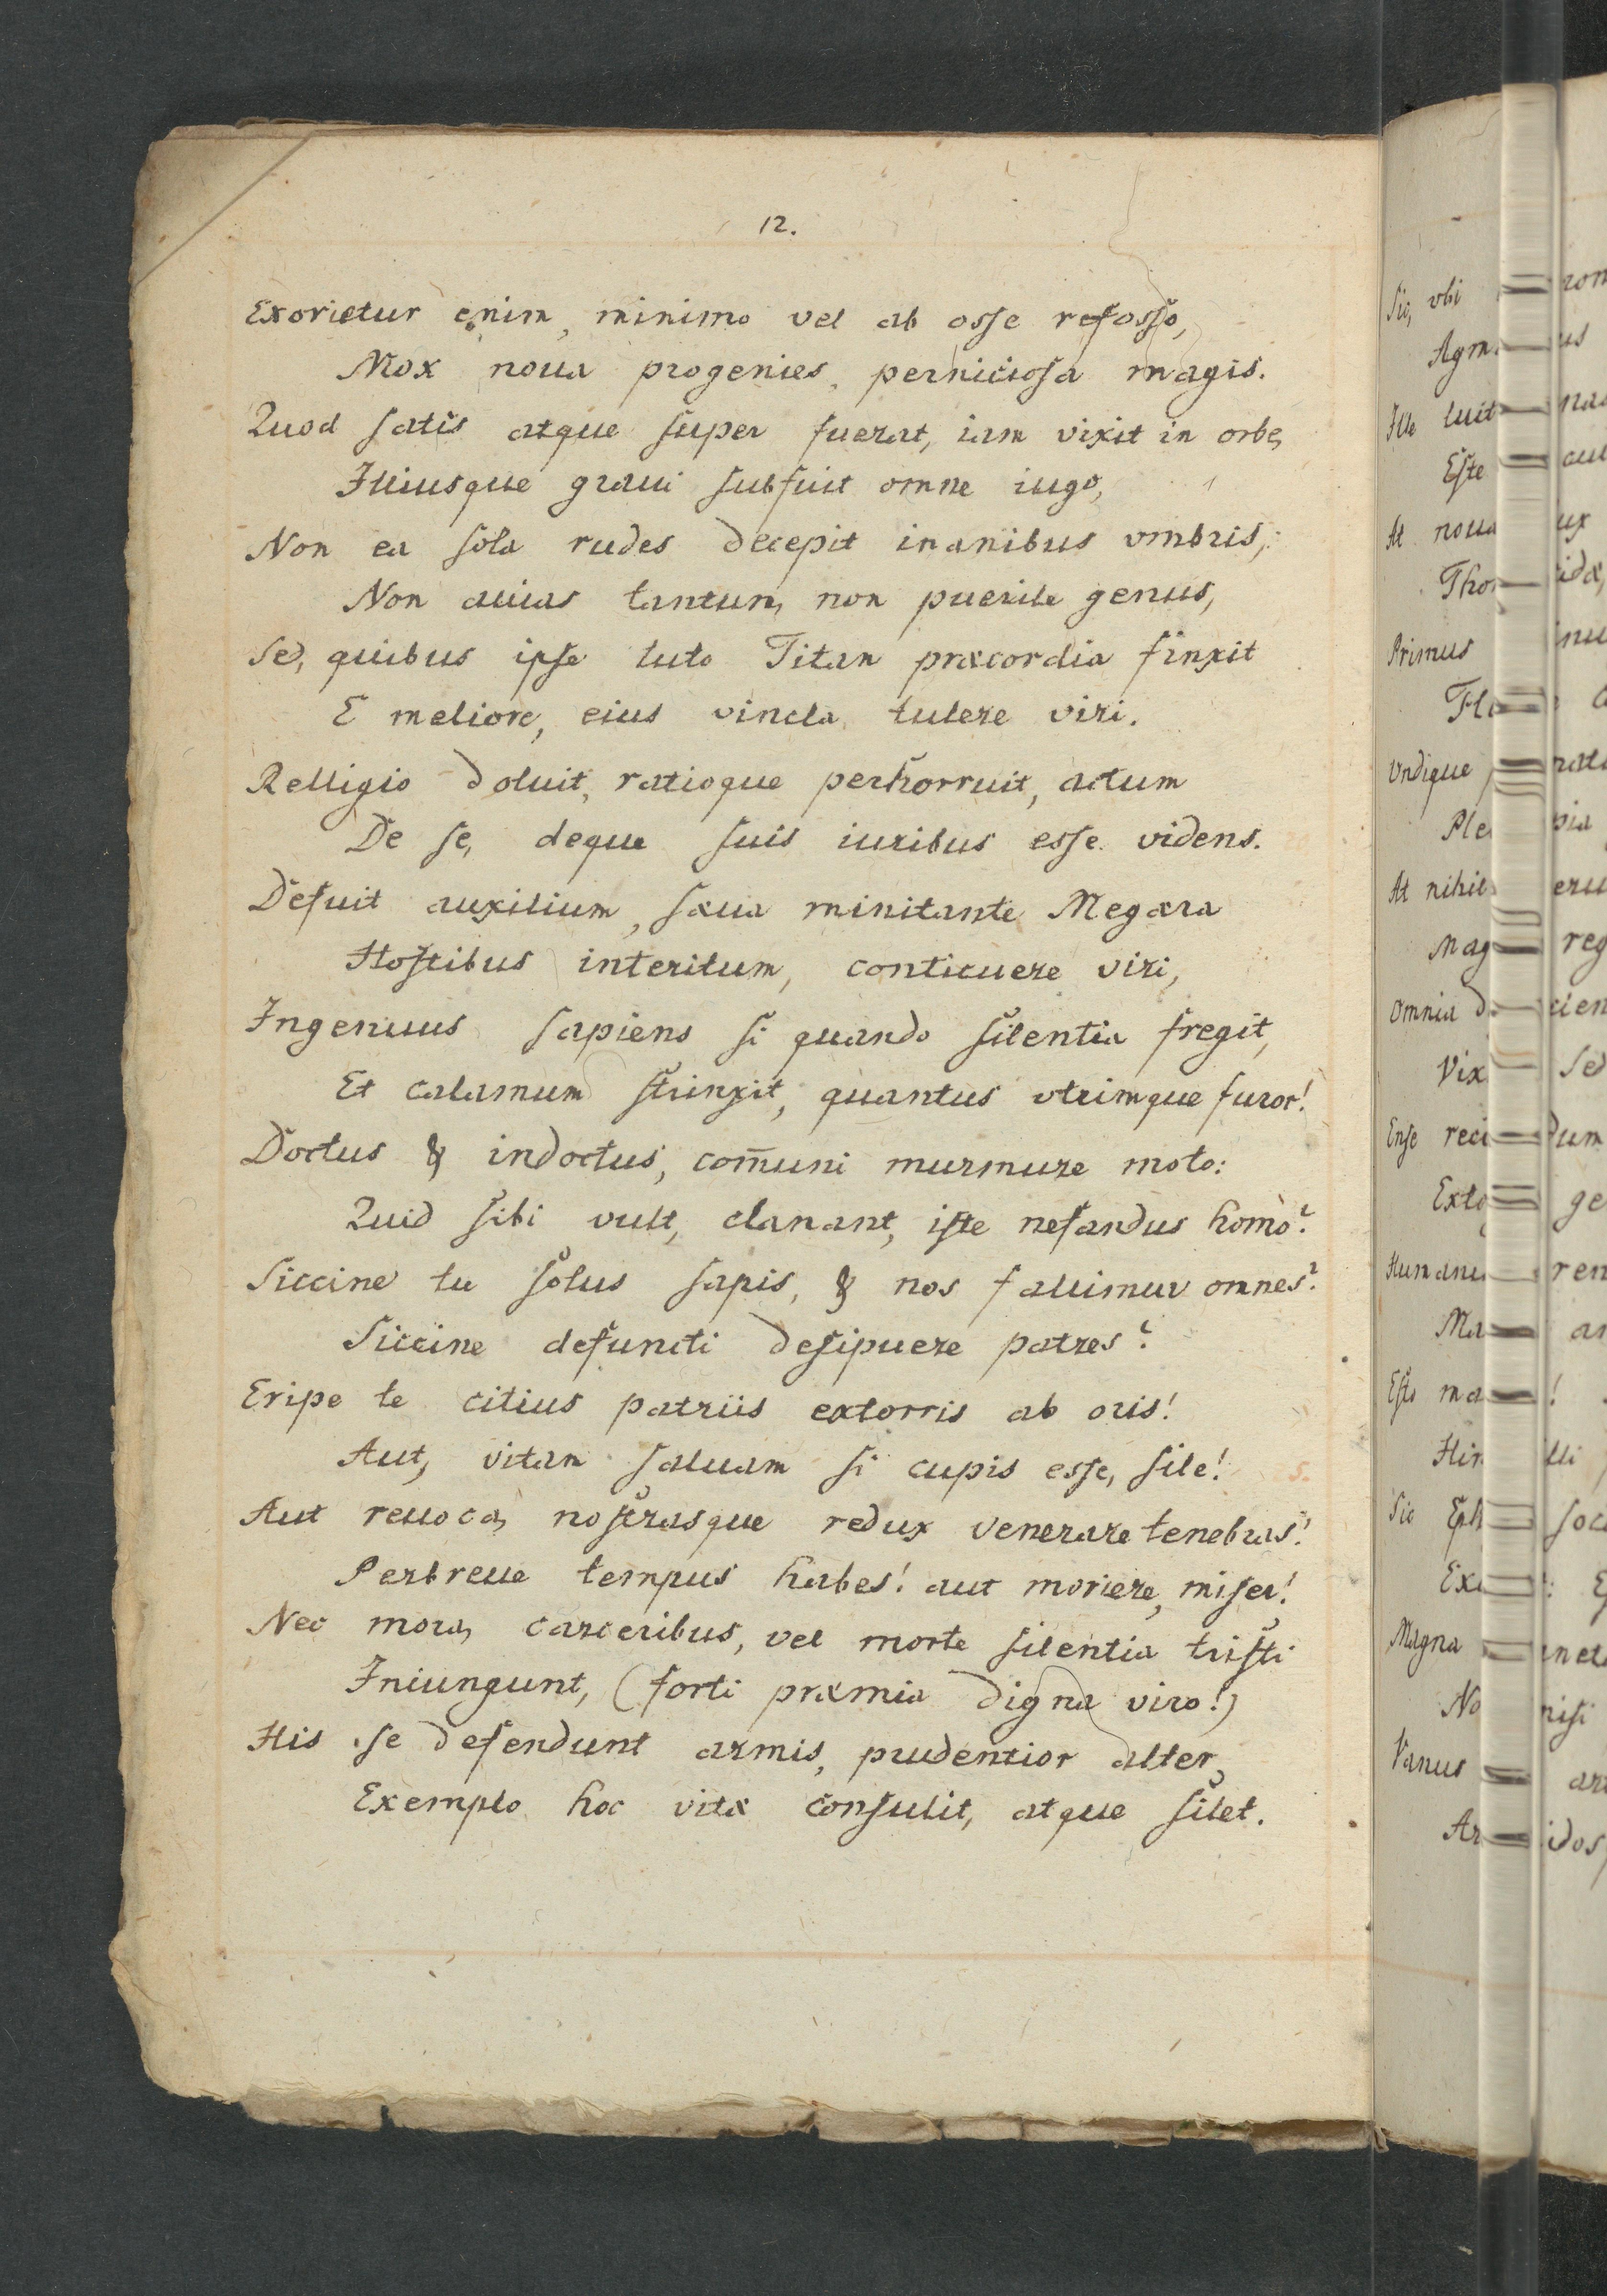 12.
Exorietur enim, minimo vel ab osse refosso,
Mox noua progenies, perniciosa magis.
Quod satis atque super fuerat, iam vixit in orbe,
Illiusque graui subfuit omne iugo,
Non ea sola rudes decepit inanibus vmbris,
Non auias tantum, non puerile genus,
Sed, quibus ipse luto Titan præcordia finxit
E meliore, eius vincla tulere viri.
Relligio doluit, ratioque perhorruit, actum
De se, deque suis iuribus esse videns.
Defuit auxilium, sæua minitante Megæra
Hostibus interitum, conticuere viri,
Ingenuus sapiens si quando silentia fregit,
Et calamum strinxit, quantus vtrimque furor!
Doctus & indoctus, com̄uni murmure moto:
Quid sibi vult, clamant, iste nefandus homo?
Siccine tu solus sapis, & nos fallimur omnes?
Siccine defuncti desipuere patres?
Eripe te citius patriis extorris ab oris!
Aut, vitam saluam si cupis esse, sile!
Aut reuoca, nostrasque redux venerare tenebras!
Perbreue tempus habes! aut moriere, miser!
Nec mora, carceribus, vel morte silentia tristi
Iniungunt, (forti præmia digna viro!)
His se defendunt armis, prudentior alter,
Exemplo hoc vitæ consulit, atque silet.
Sic, vbi
Ille
Este
At noua
Primus
Vndique
At nihil
Omnia
Vix
Sed
Ense
Esto
Sic
Magna
nisi
Vanus